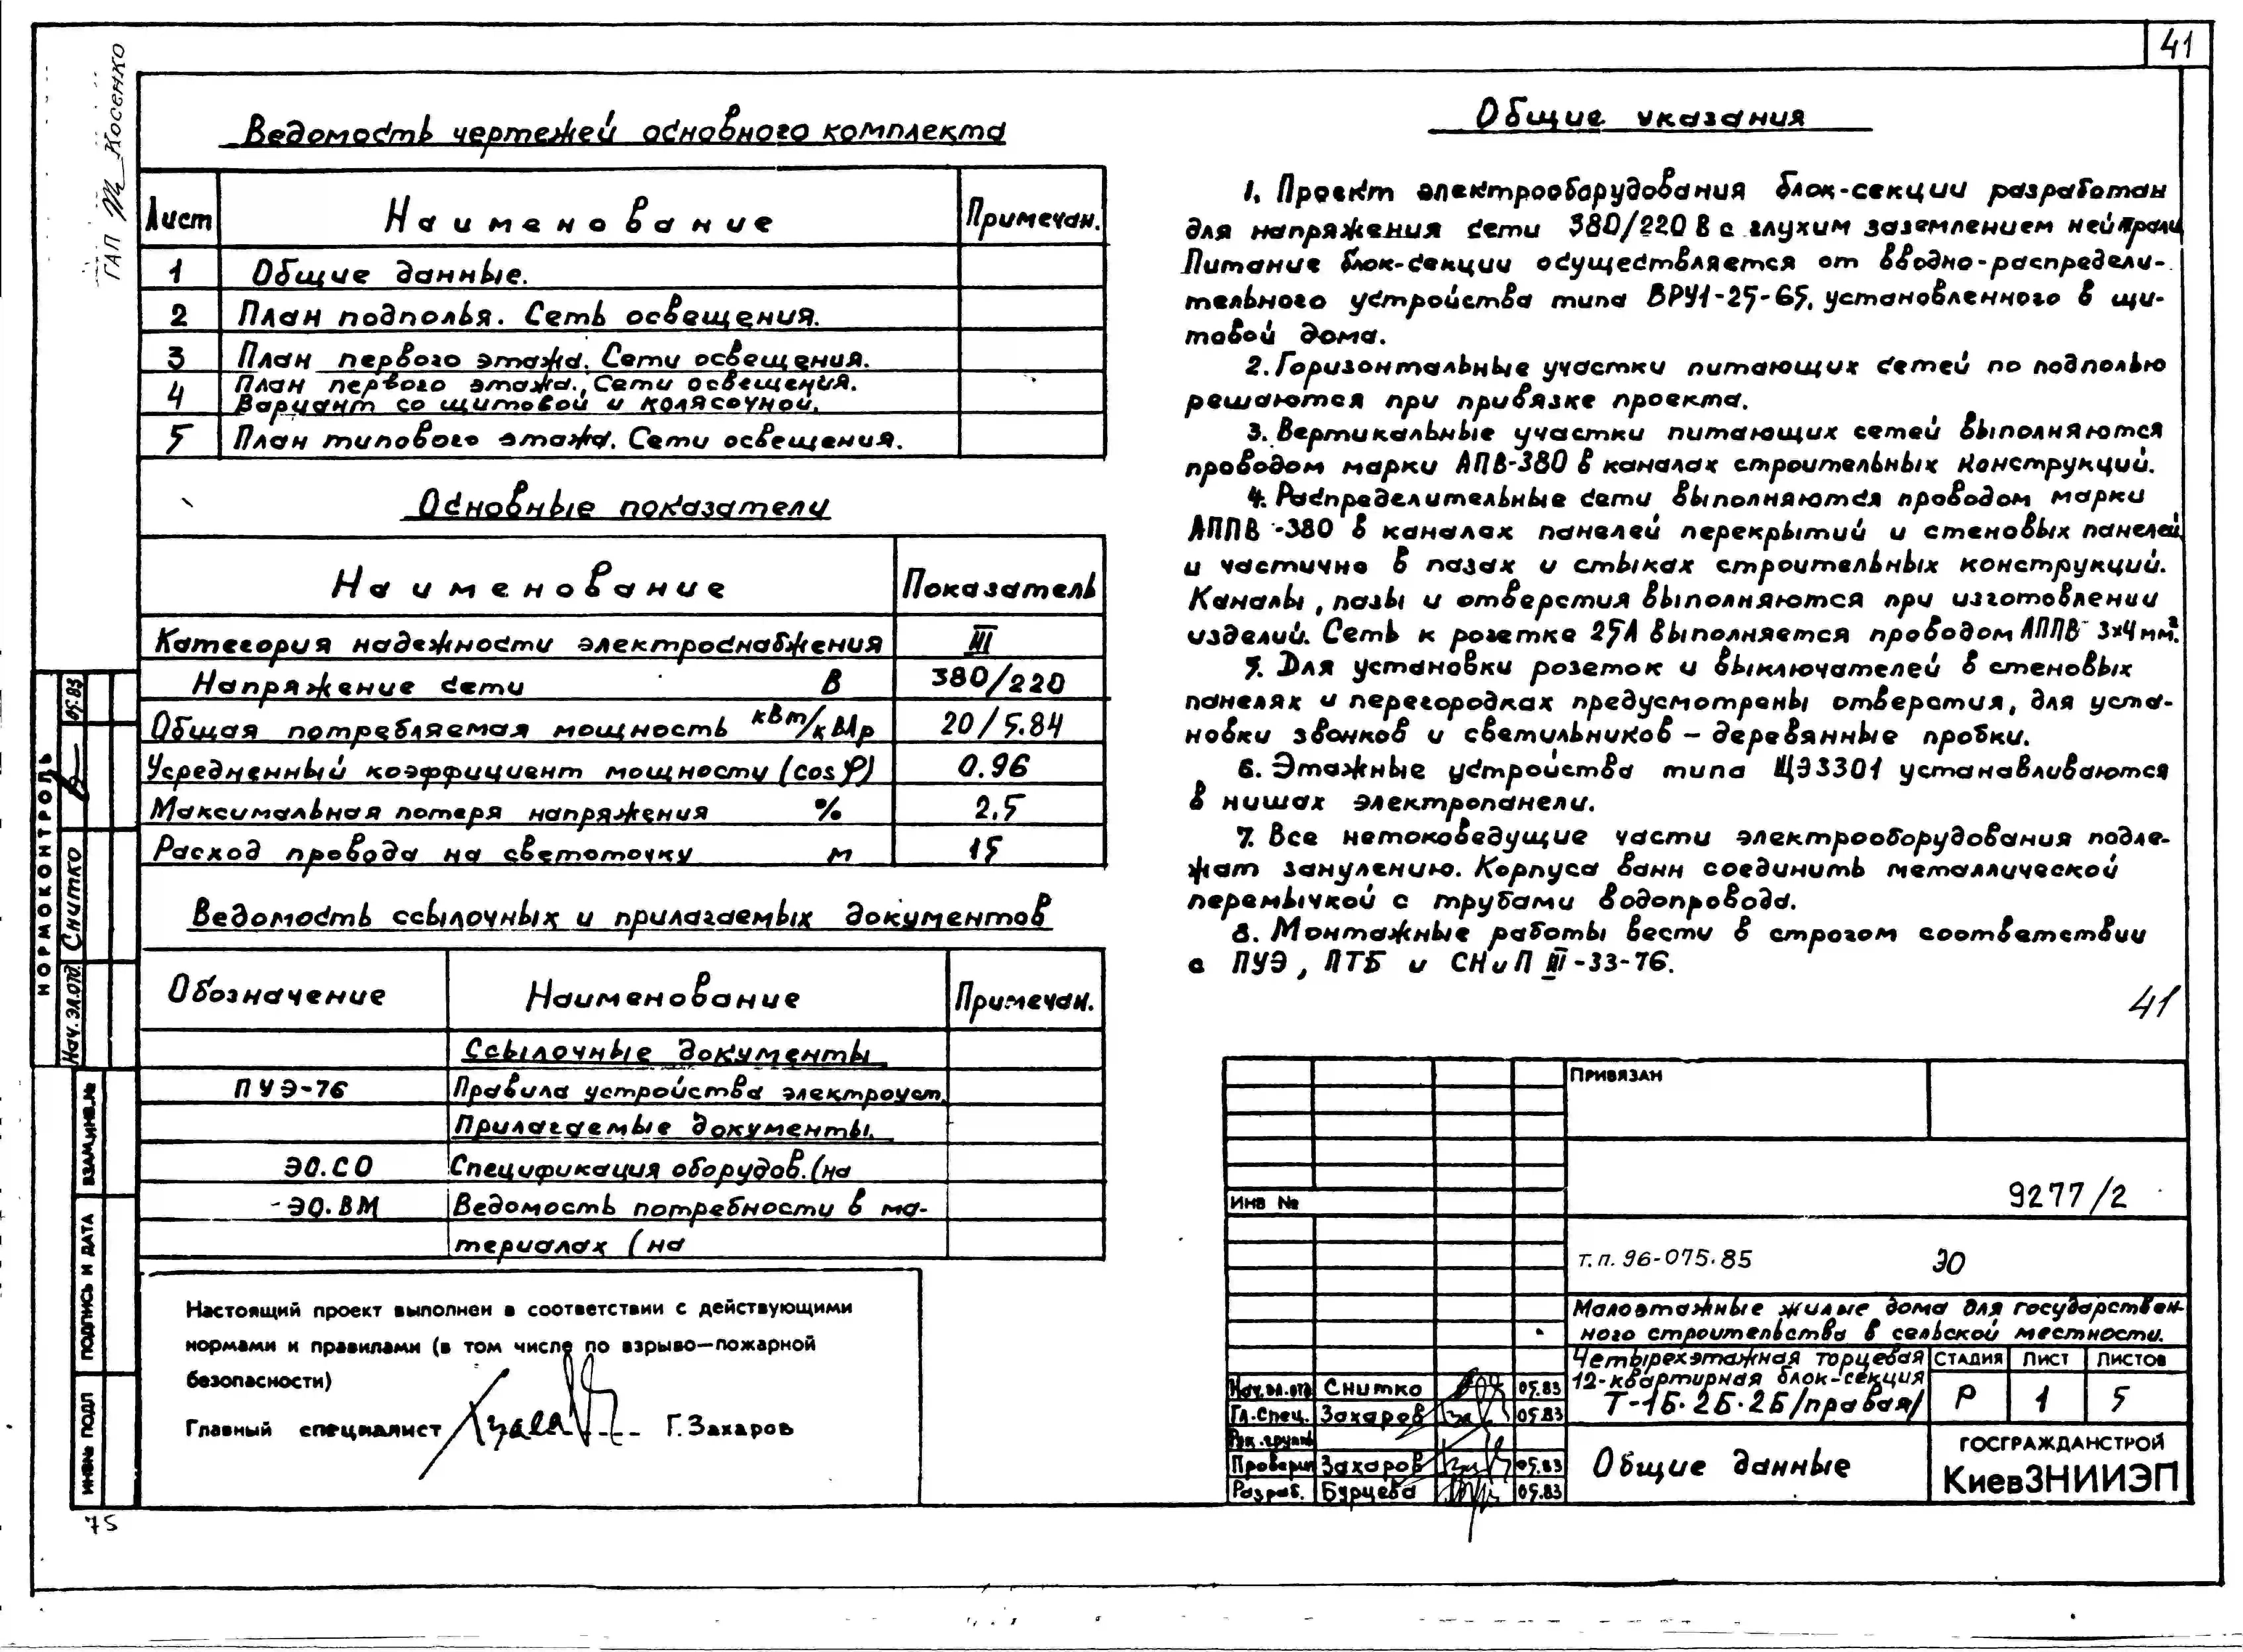 41
ГАП Косенко
Ведомость чертежей основного комплекта
Лист Наименование Примечан.
1 Общие данные.
2 План подполья. Сеть освещения.
3 План первого этажа. Сети освещения.
4 План первого этажа. Сети освещения.
Вариант со щитовой и колясочной.
5 План типового этажа. Сети освещения.
Основные показатели
Наименование Показатель
Категория надежности электроснабжения III
Напряжение сети В 380/220
Общая потребляемая мощность кВт/кВАр 20/5.84
Усредненный коэффициент мощности (cos φ) 0.96
Максимальная потеря напряжения % 2,5
Расход провода на светоточку м 15
Ведомость ссылочных и прилагаемых документов
Обозначение Наименование Примечан.
Ссылочные документы
ПУЭ-76 Правила устройства электроуст.
Прилагаемые документы.
ЭО.СО Спецификация оборудов. (на
-ЭО.ВМ Ведомость потребности в ма-
териалах (на
Настоящий проект выполнен в соответствии с действующими
нормами и правилами (в том числе по взрыво—пожарной
безопасности)
Главный специалист Г. Захаров
Общие указания
1. Проект электрооборудования блок-секции разработан
для напряжения сети 380/220 В с глухим заземлением нейтрали
Питание блок-секции осуществляется от вводно-распредели-
тельного устройства типа ВРУ1-25-65, установленного в щи-
товой дома.
2. Горизонтальные участки питающих сетей по подполью
решаются при привязке проекта.
3. Вертикальные участки питающих сетей выполняются
проводом марки АПВ-380 в каналах строительных конструкций.
4. Распределительные сети выполняются проводом марки
АППВ-380 в каналах панелей перекрытий и стеновых панелей
и частично в пазах и стыках строительных конструкций.
Каналы, пазы и отверстия выполняются при изготовлении
изделий. Сеть к розетке 25А выполняется проводом АППВ 3x4 мм².
5. Для установки розеток и выключателей в стеновых
панелях и перегородках предусмотрены отверстия, для уста-
новки звонков и светильников – деревянные пробки.
6. Этажные устройства типа ЩЭ3301 устанавливаются
в нишах электропанели.
7. Все нетоковедущие части электрооборудования подле-
жат занулению. Корпуса ванн соединить металлической
перемычкой с трубами водопровода.
8. Монтажные работы вести в строгом соответствии
с ПУЭ, ПТБ и СНиП III-33-76.
41
Привязан
Инв №
9277/2
т.п. 96-075.85 ЭО
Малоэтажные жилые дома для государствен-
ного строительства в сельской местности.
Четырехэтажная торцевая
12-квартирная блок-секция
Т-1Б·2Б·2Б/правая/
Стадия Лист Листов
Р 1 5
Нач.эл.отд Снитко 05.83
Гл.спец. Захаров 05.83
Рук.группы
Проверил Захаров 05.83
Разраб. Бурцева 05.83
Общие данные
ГОСГРАЖДАНСТРОЙ
КиевЗНИИЭП
НОРМОКОНТРОЛЬ
Нач.эл.отд. Снитко 05.83
ИНВ№ ПОДЛ ПОДПИСЬ И ДАТА ВЗАМ.ИНВ.№
75